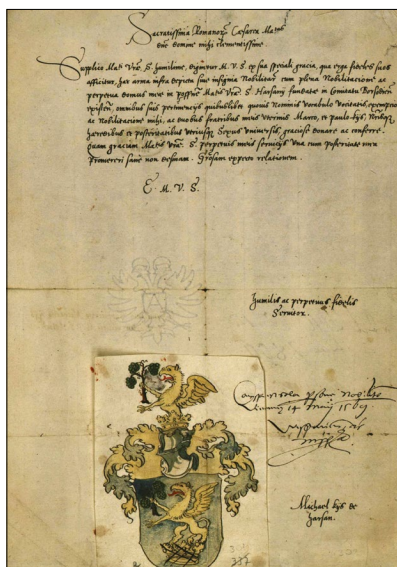 Sacratissima Romanor Caesarea Maᵗᵃˢ
dne domine mihi clementissime
Supplico Maᵗⁱ Vrae S. humilime, dignetur M. V. S. ex sua speciali gracia, qua erga fideles suos
afficitur, haec arma infra depicta sive insignia Nobilitaris cum plena Nobilitacione ac
perpetua domus mee in possᵉ Maᵗⁱˢ Vrae S. Harsany fundate in Comitatu Borsodien
existen, omnibus suis pertinencys quibuslibet quovis Nominis vocabulo vocitatis, exempcione
ac Nobilitacione mihi, ac duobus fratribus meis uterinis Marco, et Paulo kys, Nrisque
haeredibus et posteritatibus utriusque Sexus universis, graciose donare ac conferre.
Quam graciam Maᵗⁱˢ Vrae S. perpetuis meis servicys una cum posteritate mea
promereri sane non desinam. Grosam expecto relationem.
E. M. V. S.
humilis ac perpetuus fidelis
Servitor.
14 1569
Michael kys de
harsan.
337